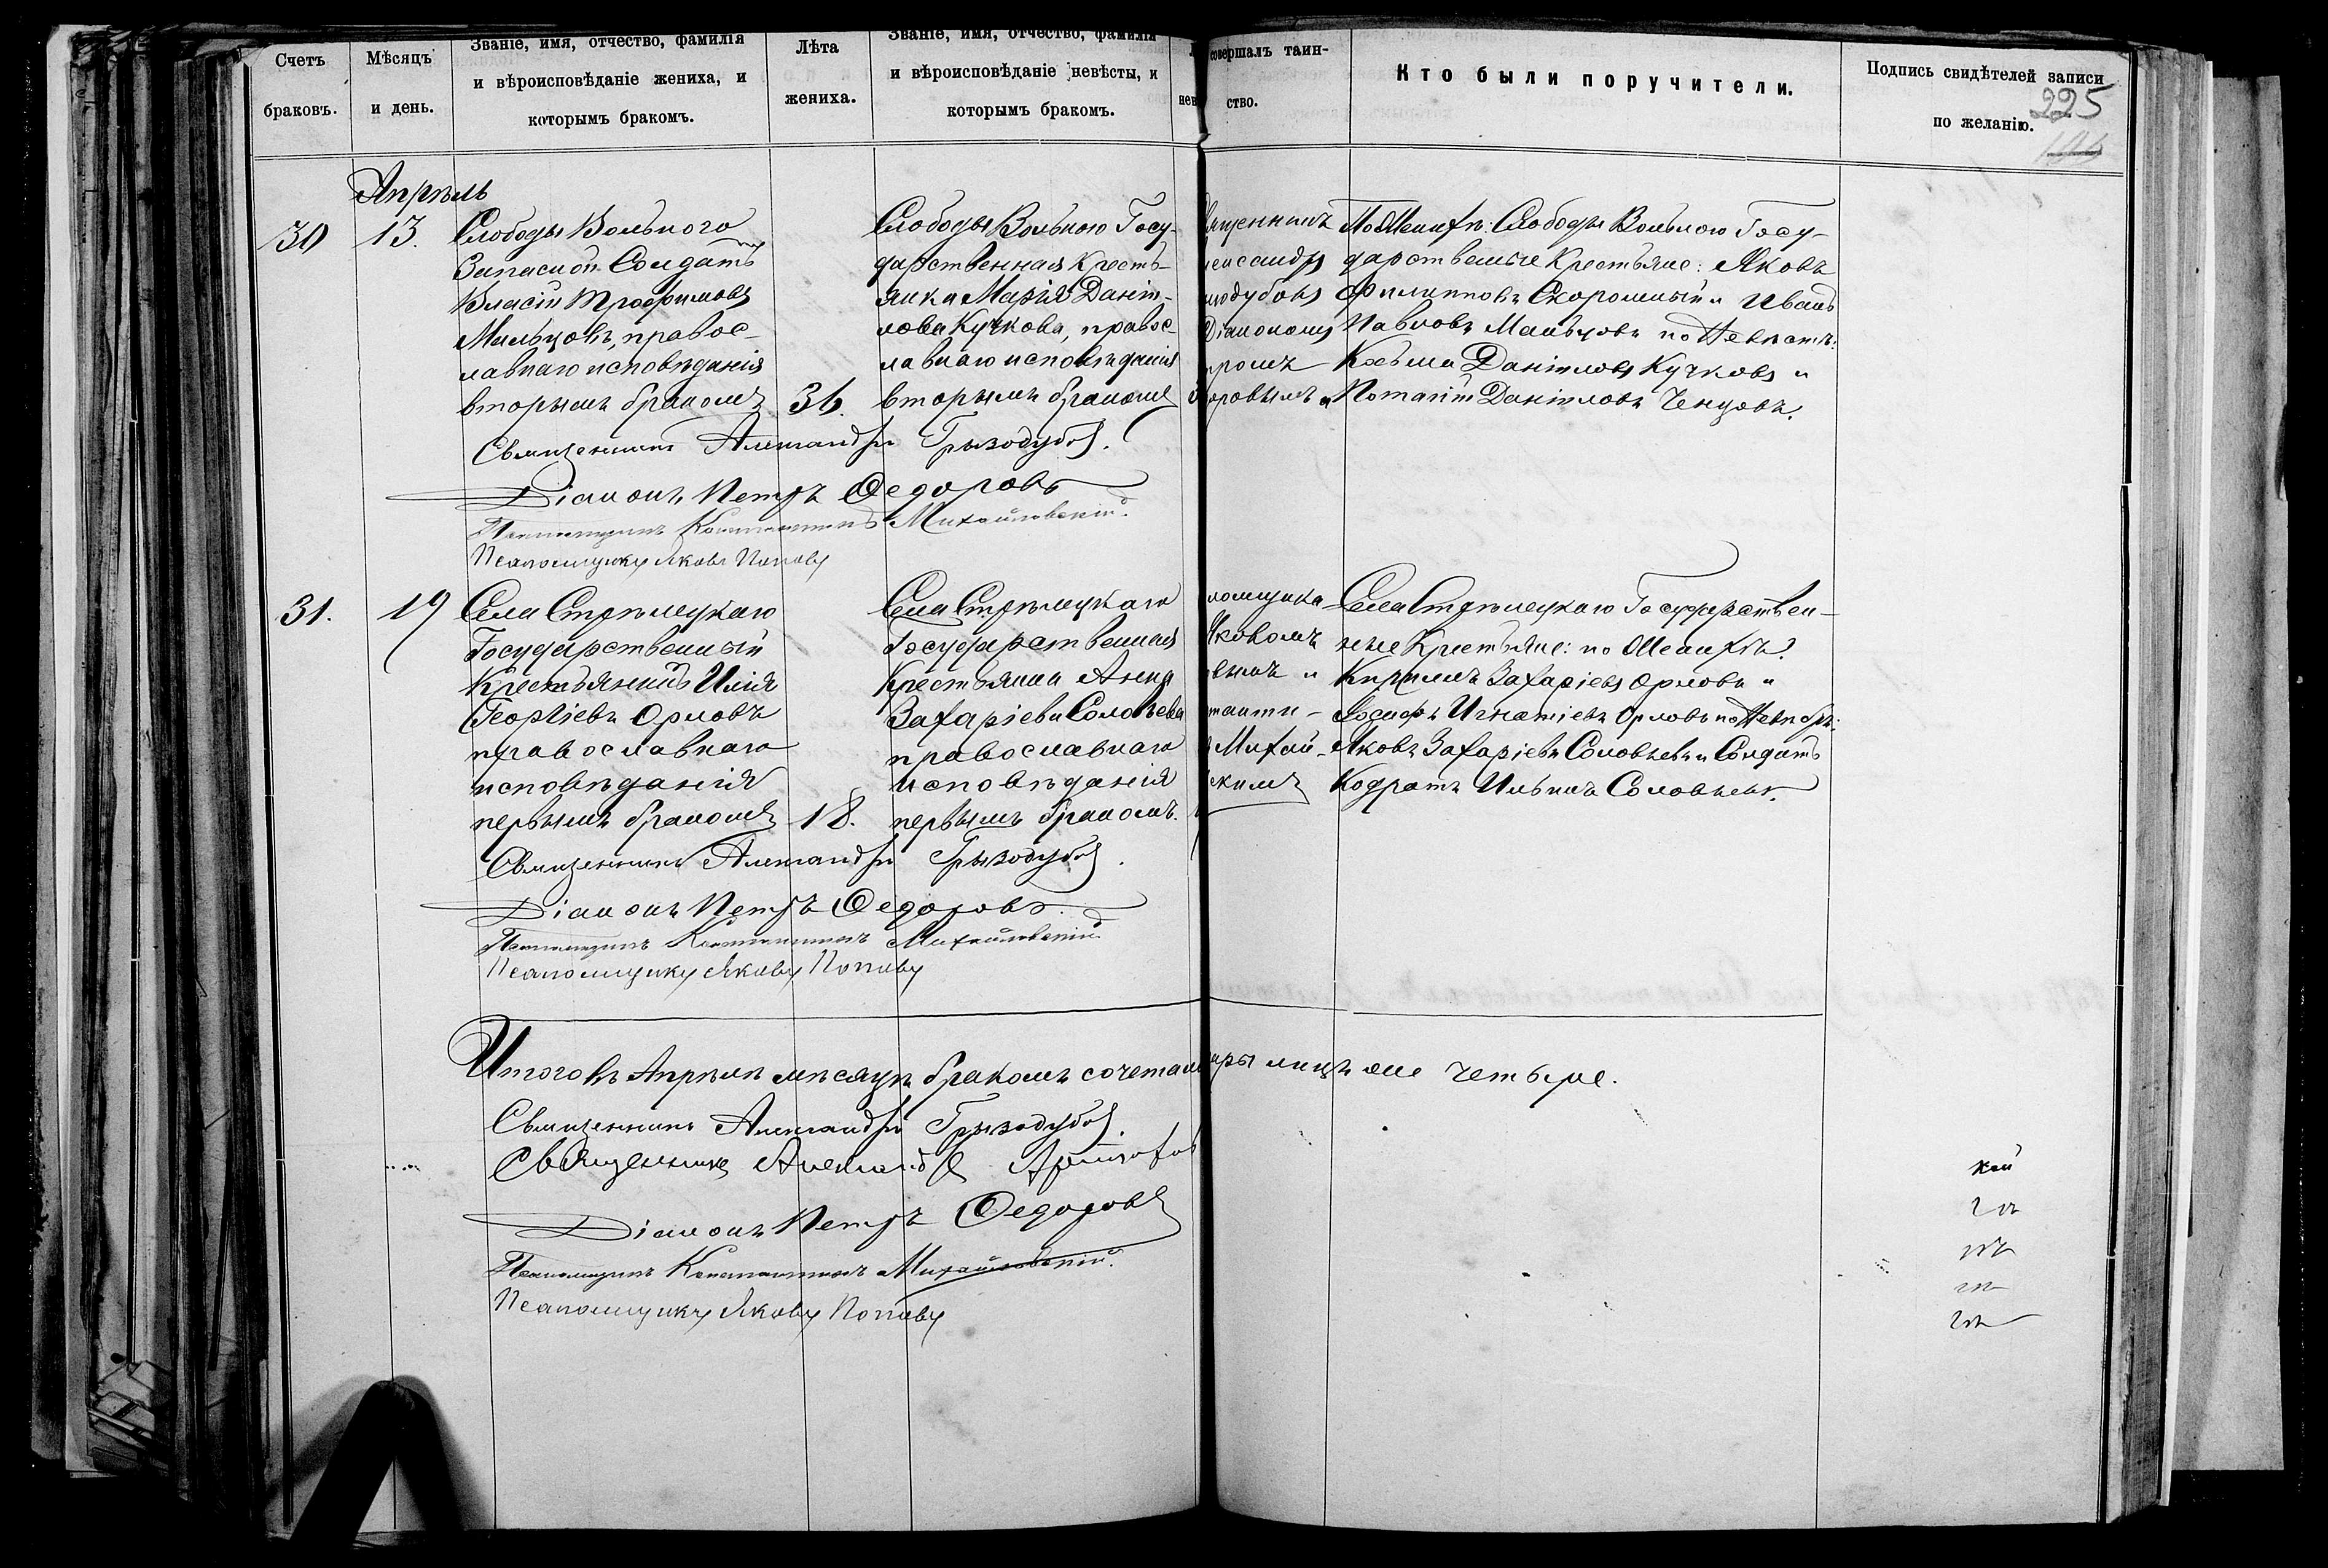 Счетъ
браковъ.
Мѣсяцъ
и день.
Званіе, имя, отчество, фамилія
и вѣроисповѣданіе жениха, и
которымъ бракомъ.
Лѣта
жениха.
Званіе, имя, отчество, фамилія
и вѣроисповѣданіе невѣсты, и
которымъ бракомъ.
нев
совершалъ таин-
ство.
Кто были поручители.
Подпись свидѣтелей записи
по желанію.
225
Апрѣль
30
13.
Слободы Вольного
Запасной Солдатъ
Власій Трофимовъ
Мальцовъ, правос-
лавнаго исповѣданія
вторымъ бракомъ
36.
Слободы Вольною Госу-
дарственная Кресть-
янка Марія Даніи-
лова Кучкова, правос-
лавнаго исповѣданія
вторымъ бракомъ
ященникъ
лександръ
изодубовъ
Діакономъ
тромъ
оровымъ и
По Женихѣ: Слободы Вольною Госу-
дарственные Крестьяне: Яковъ
Филипповъ Скоромный и Иванъ
Павловъ Мальцовъ по Невѣстѣ:
Козьма Даніиловъ Кучковъ и
Потапій Даніиловъ Ченцовъ.
Священникъ Александръ Грызодубовъ.
Діаконъ Петръ Ѳедоровъ
Псаломщикъ Константинъ Михайловскій.
Псаломщикъ Яковъ Поповъ
31.
19
Села Стрѣлецкаго
Государственный
Крестьянинъ Илія
Георгіевъ Орловъ
православнаго
исповѣданія
первымъ бракомъ
18.
Села Стрѣлецкаго
Государственная
Крестьянка Анна
Захаріева Соловьева
православнаго
исповѣданія
первымъ бракомъ.
ломщика
Яковомъ
вымъ и
танти-
Михай-
скимъ
Села Стрѣлецкаго Государствен-
ные Крестьяне: по Женихѣ:
Кириллъ Захаріевъ Орловъ и
Іосифъ Игнатіевъ Орловъ по Невѣстѣ:
Яковъ Захаріевъ Соловьевъ и Солдатъ
Кодратъ Ильинъ Соловьевъ.
Священникъ Александръ Грызодубовъ.
Діаконъ Петръ Ѳедоровъ.
Псаломщикъ Константинъ Михайловскій.
Псаломщикъ Яковъ Поповъ
Итого въ Апрѣлѣ мѣсяцѣ бракомъ сочетались пары лицъ четыре.
Священникъ Александръ Грызодубовъ.
Священникъ Александръ
Діаконъ Петръ Ѳедоровъ
Псаломщикъ Константинъ Михайловскій.
Псаломщикъ Яковъ Поповъ